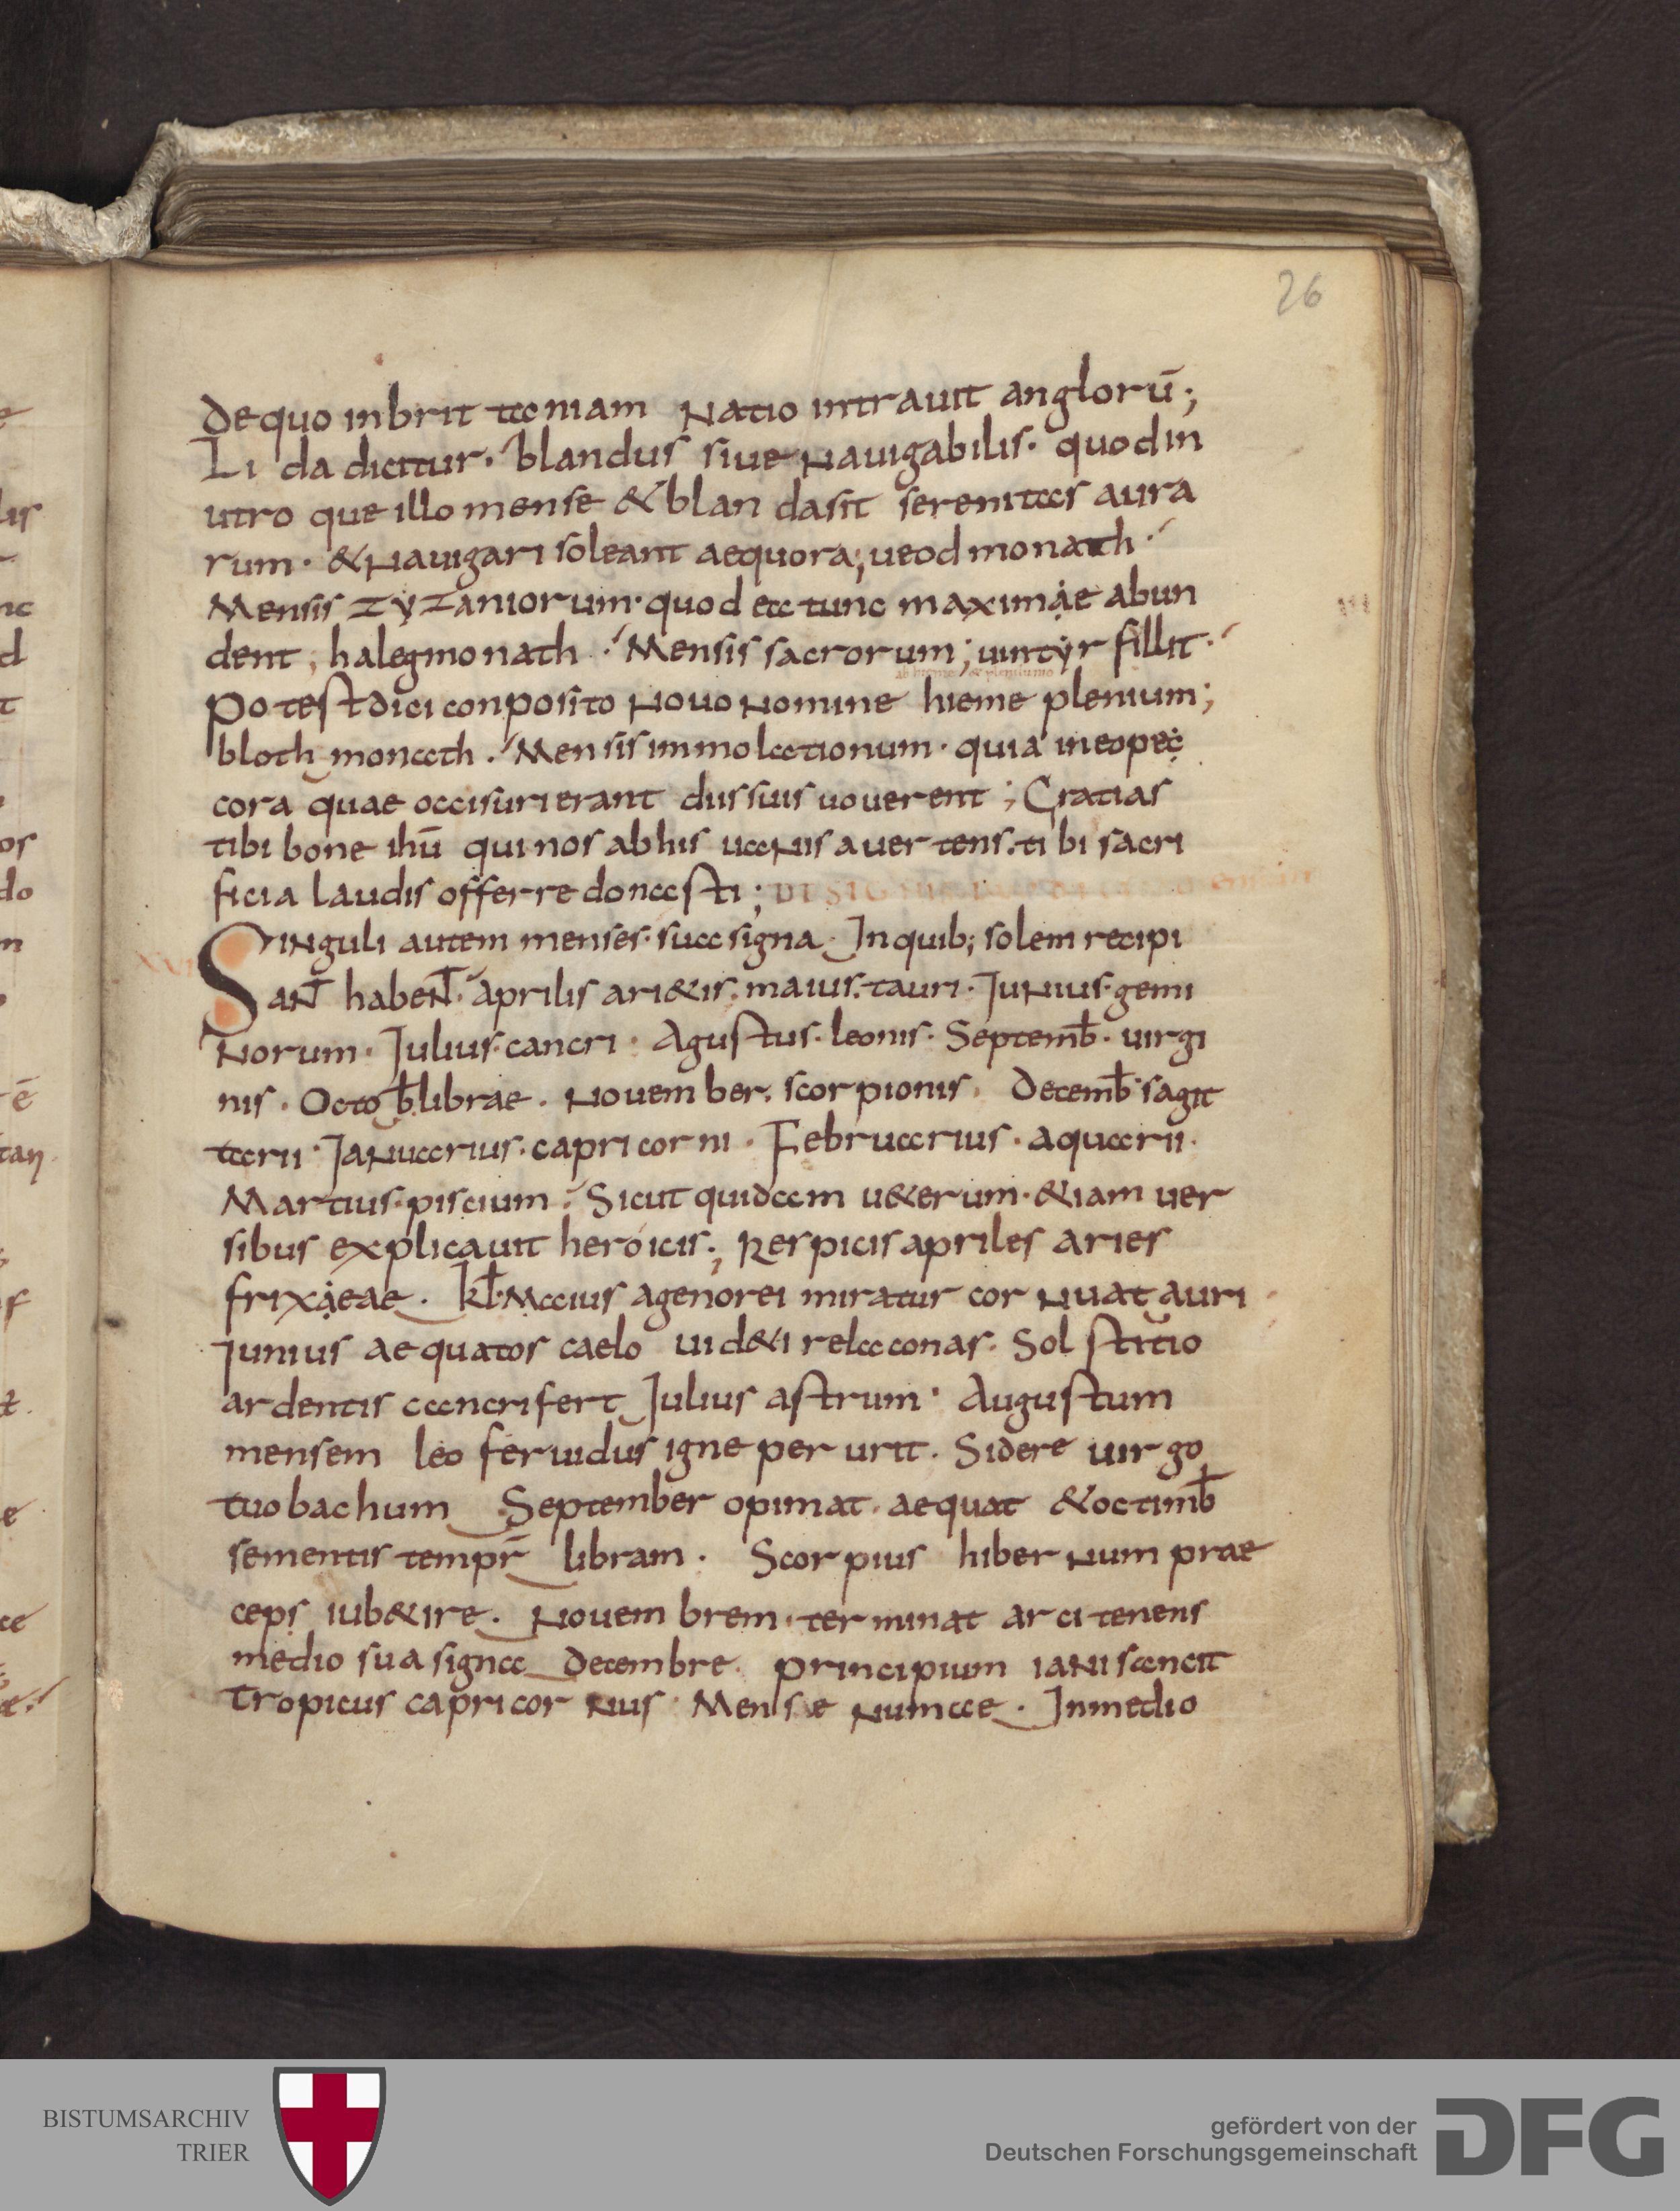 26
dequo inbrittaniam Natio intrauit anglorū;
Lida dicitur. blandus siue Nauigabilis. quodin
utroque illo mense & blandasit serenitas aura
rum. & Nauigari soleant aequora; ueodmonath.
Mensis zyzaniorum. quod ea tunc maximae abun
dent, halegmonath. Mensis sacrorum; uuintyrfillit.
potest dici conposito Nouo Nomine hieme plenium;
bloth monath. Mensis immolationum. quia ineope
cora quae occisuri erant diis suis uouerent; Gratias
tibi bone ihū qui nos ab his uaNis auertens. tibi sacri
ficia laudis offerre donasti;
SiNguli autem menses. sua signa. Inquib; solem recipi
aN̄ habeN̄. aprilis ari&is. maius. tauri. JuNius. gemi
Norum. Julius. cancri. Agustus. leonis. Septemb̄. uirgi
nis. Octob̄ librae. Nouember. scorpionis. Decemb̄ sagit
tarii. JaNuarius. capricorni. Februarius. aquarii.
Martius. piscium. Sicut quidam u&erum. &iam uer
sibus explicauit heroicis; Rerpicis apriles aries
frixaeae. kl̄. Maius agenorei miratur corNua tauri
Junius aequatos caelo uid&i relaconas. Solstitio
ardentis cancri fert Julius astrum. Augustum
mensem leo feruidus igne perurit. Sidere uirgo
tuo bachum September opimat. aequat & octimb̄
sementis tempr̄ libram. Scorpius hiberNum prae
ceps iub& ire. Nouembrem. terminat arcitenens
medio sua signa Decembre. principium iaNi sancit
tropicus capricorNus. Mense Numae. Inmedio
BISTUMSARCHIV
TRIER
gefördert von der
Deutschen Forschungsgemeinschaft
DFG